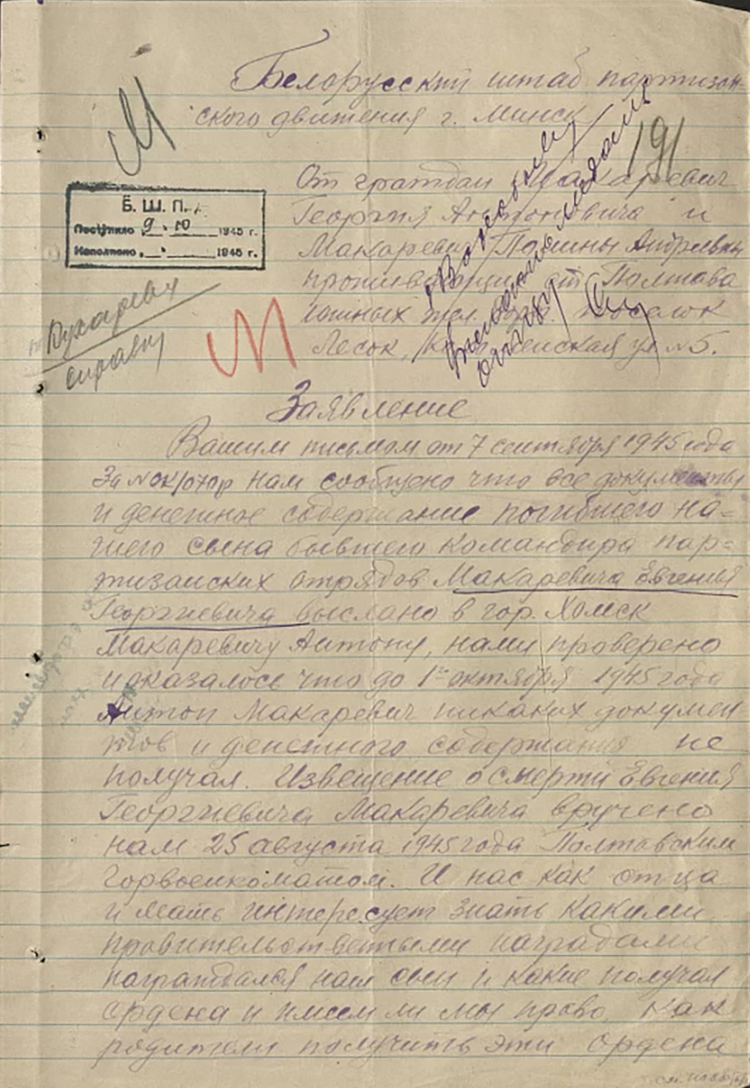 Белорусский штаб партизан-
ского движения г. Минск
191
От граждан Макаревич
Георгия Антоновича и
Макаревич Полины Андреевны
проживающих ст. Полтава
Южных жел. дор. поселок
Лесок, ул №5.
М
Б. Ш. П. Д.
Поступило 9. 10 1945 г.
Исполнено 1945 г.
т. Кухареву
справку
М
Заявление
Вашим письмом от 7 сентября 1945 года
За № ОК/070р нам сообщено что все документы
и денежное содержание погибшего на-
шего сына бывшего командира пар-
тизанских отрядов Макаревича Евгения
Георгиевича выслано в гор. Хомск
Макаревичу Антону, нами проверено
и оказалось что до 1го октября 1945 года
Антон Макаревич никаких докумен
тов и денежного содержания не
получал. Извещение о смерти Евгения
Георгиевича Макаревича вручено
нам 25 августа 1945 года Полтавским
Горвоенкоматом. И нас как отца
и мать интересует знать какими
правительственными наградами
награждался наш сын и какие получал
ордена и имеем ли мы право как
родители получить эти ордена